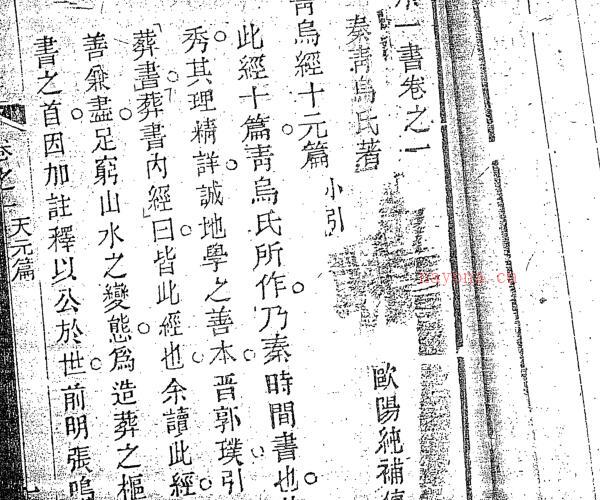 一書卷之一
秦靑烏氏著
歐陽純補
靑烏經十元篇 小引
此經十篇靑烏氏所作乃秦時間書也
秀其理精詳誠地學之善本晋郭璞引
葬書葬書內經曰皆此經也余讀此經
善兼盡足窮山水之變態爲造葬之樞
書之首因加註釋以公於世前明張
卷之一 天元篇